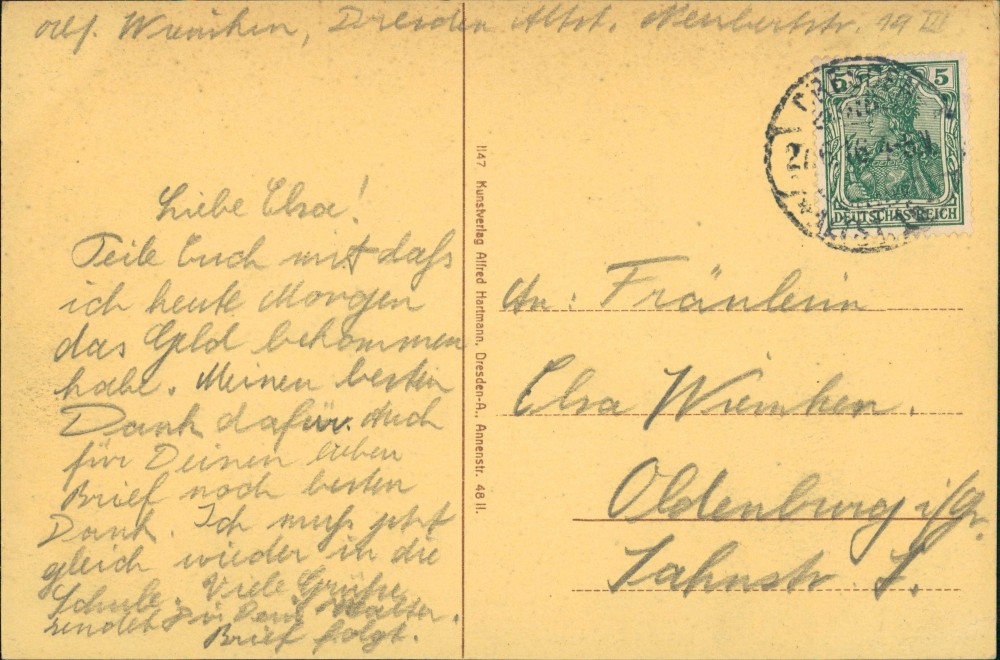 Wunken, Dresden Altst. 19 III
Liebe Elsa!
Teile Euch mit daſs
ich heute Morgen
das Geld bekommen
habe. Meinen besten
Dank dafür. Auch
für Deinen lieben
Brief noch besten
Dank. Ich muſs jetzt
gleich wieder in die
Schule. Viele Grüſse
sendet Dir Dein Walter.
Brief folgt.
1147 Kunstverlag Alfred Hartmann, Dresden-A., Annenstr. 48 II.
5 5
DEUTSCHES REICH
DRESDEN
ALTST.
An: Fräulein
Elsa
Oldenburg i/Gr.